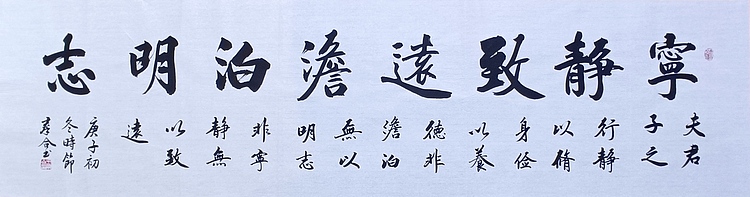 寧靜致遠澹泊明志
夫君
子之
行靜
以脩
身儉
以養
德非
澹泊
無以
明志
非寧
靜無
以致
遠
庚子初
冬時節